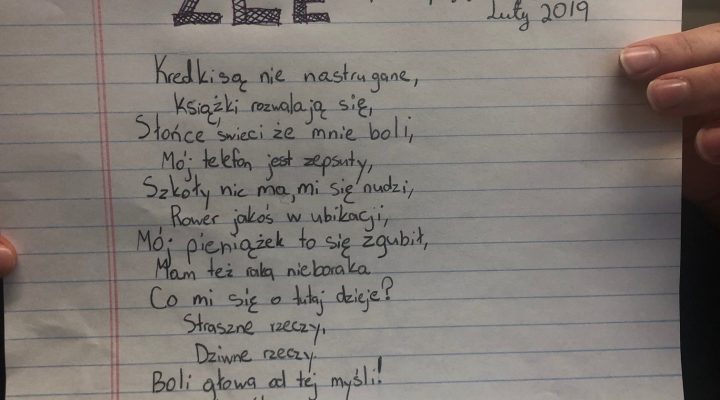 ŹLE
Luty 2019
Kredki są nie nastrugane,
Książki rozwalają się,
Słońce świeci że mnie boli,
Mój telefon jest zepsuty,
Szkoły nic ma, mi się nudzi,
Rower jakoś w ubikacji,
Mój pieniążek to się zgubił,
Mam też raka nieboraka
Co mi się o tutaj dzieje?
Straszne rzeczy,
Dziwne rzeczy
Boli głowa od tej myśli!